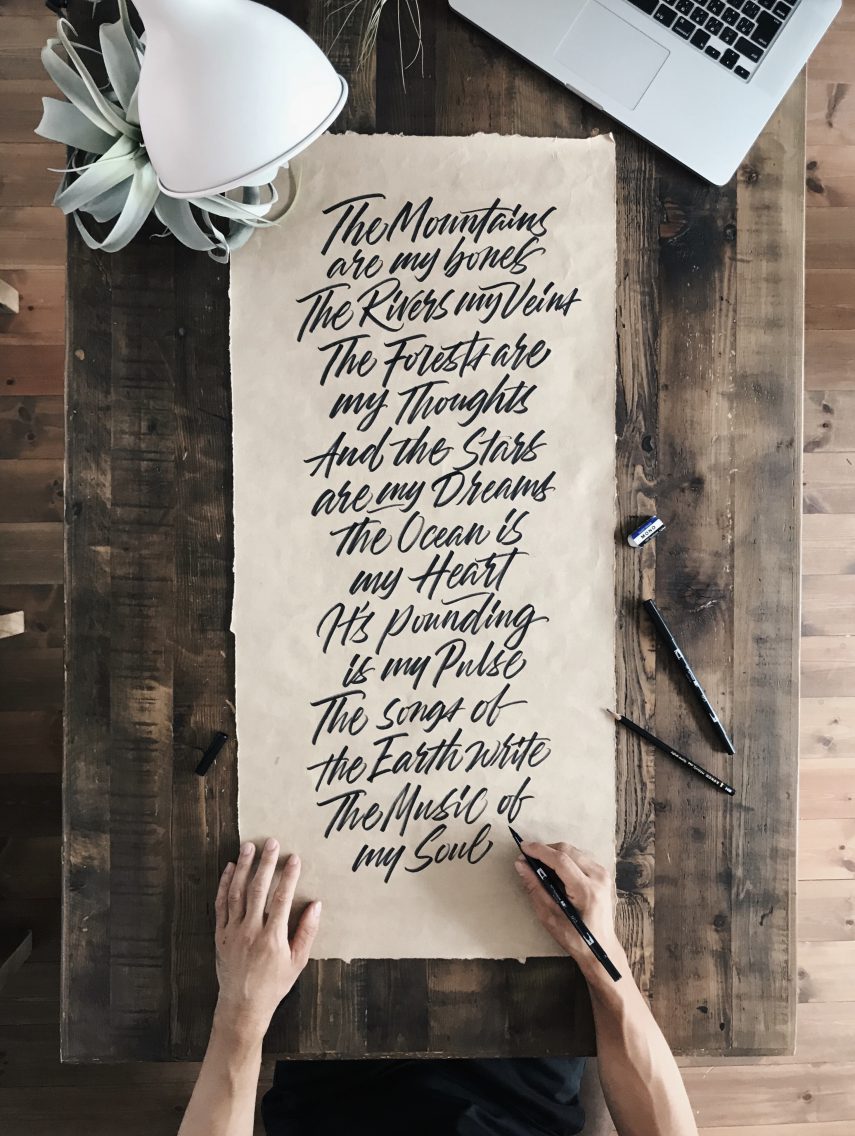 The Mountains
are my bones
The Rivers my Veins
The Forests are
my Thoughts
And the Stars
are my Dreams
the Ocean is
my Heart
It's pounding
is my Pulse
The songs of
the Earth write
The Music of
my Soul